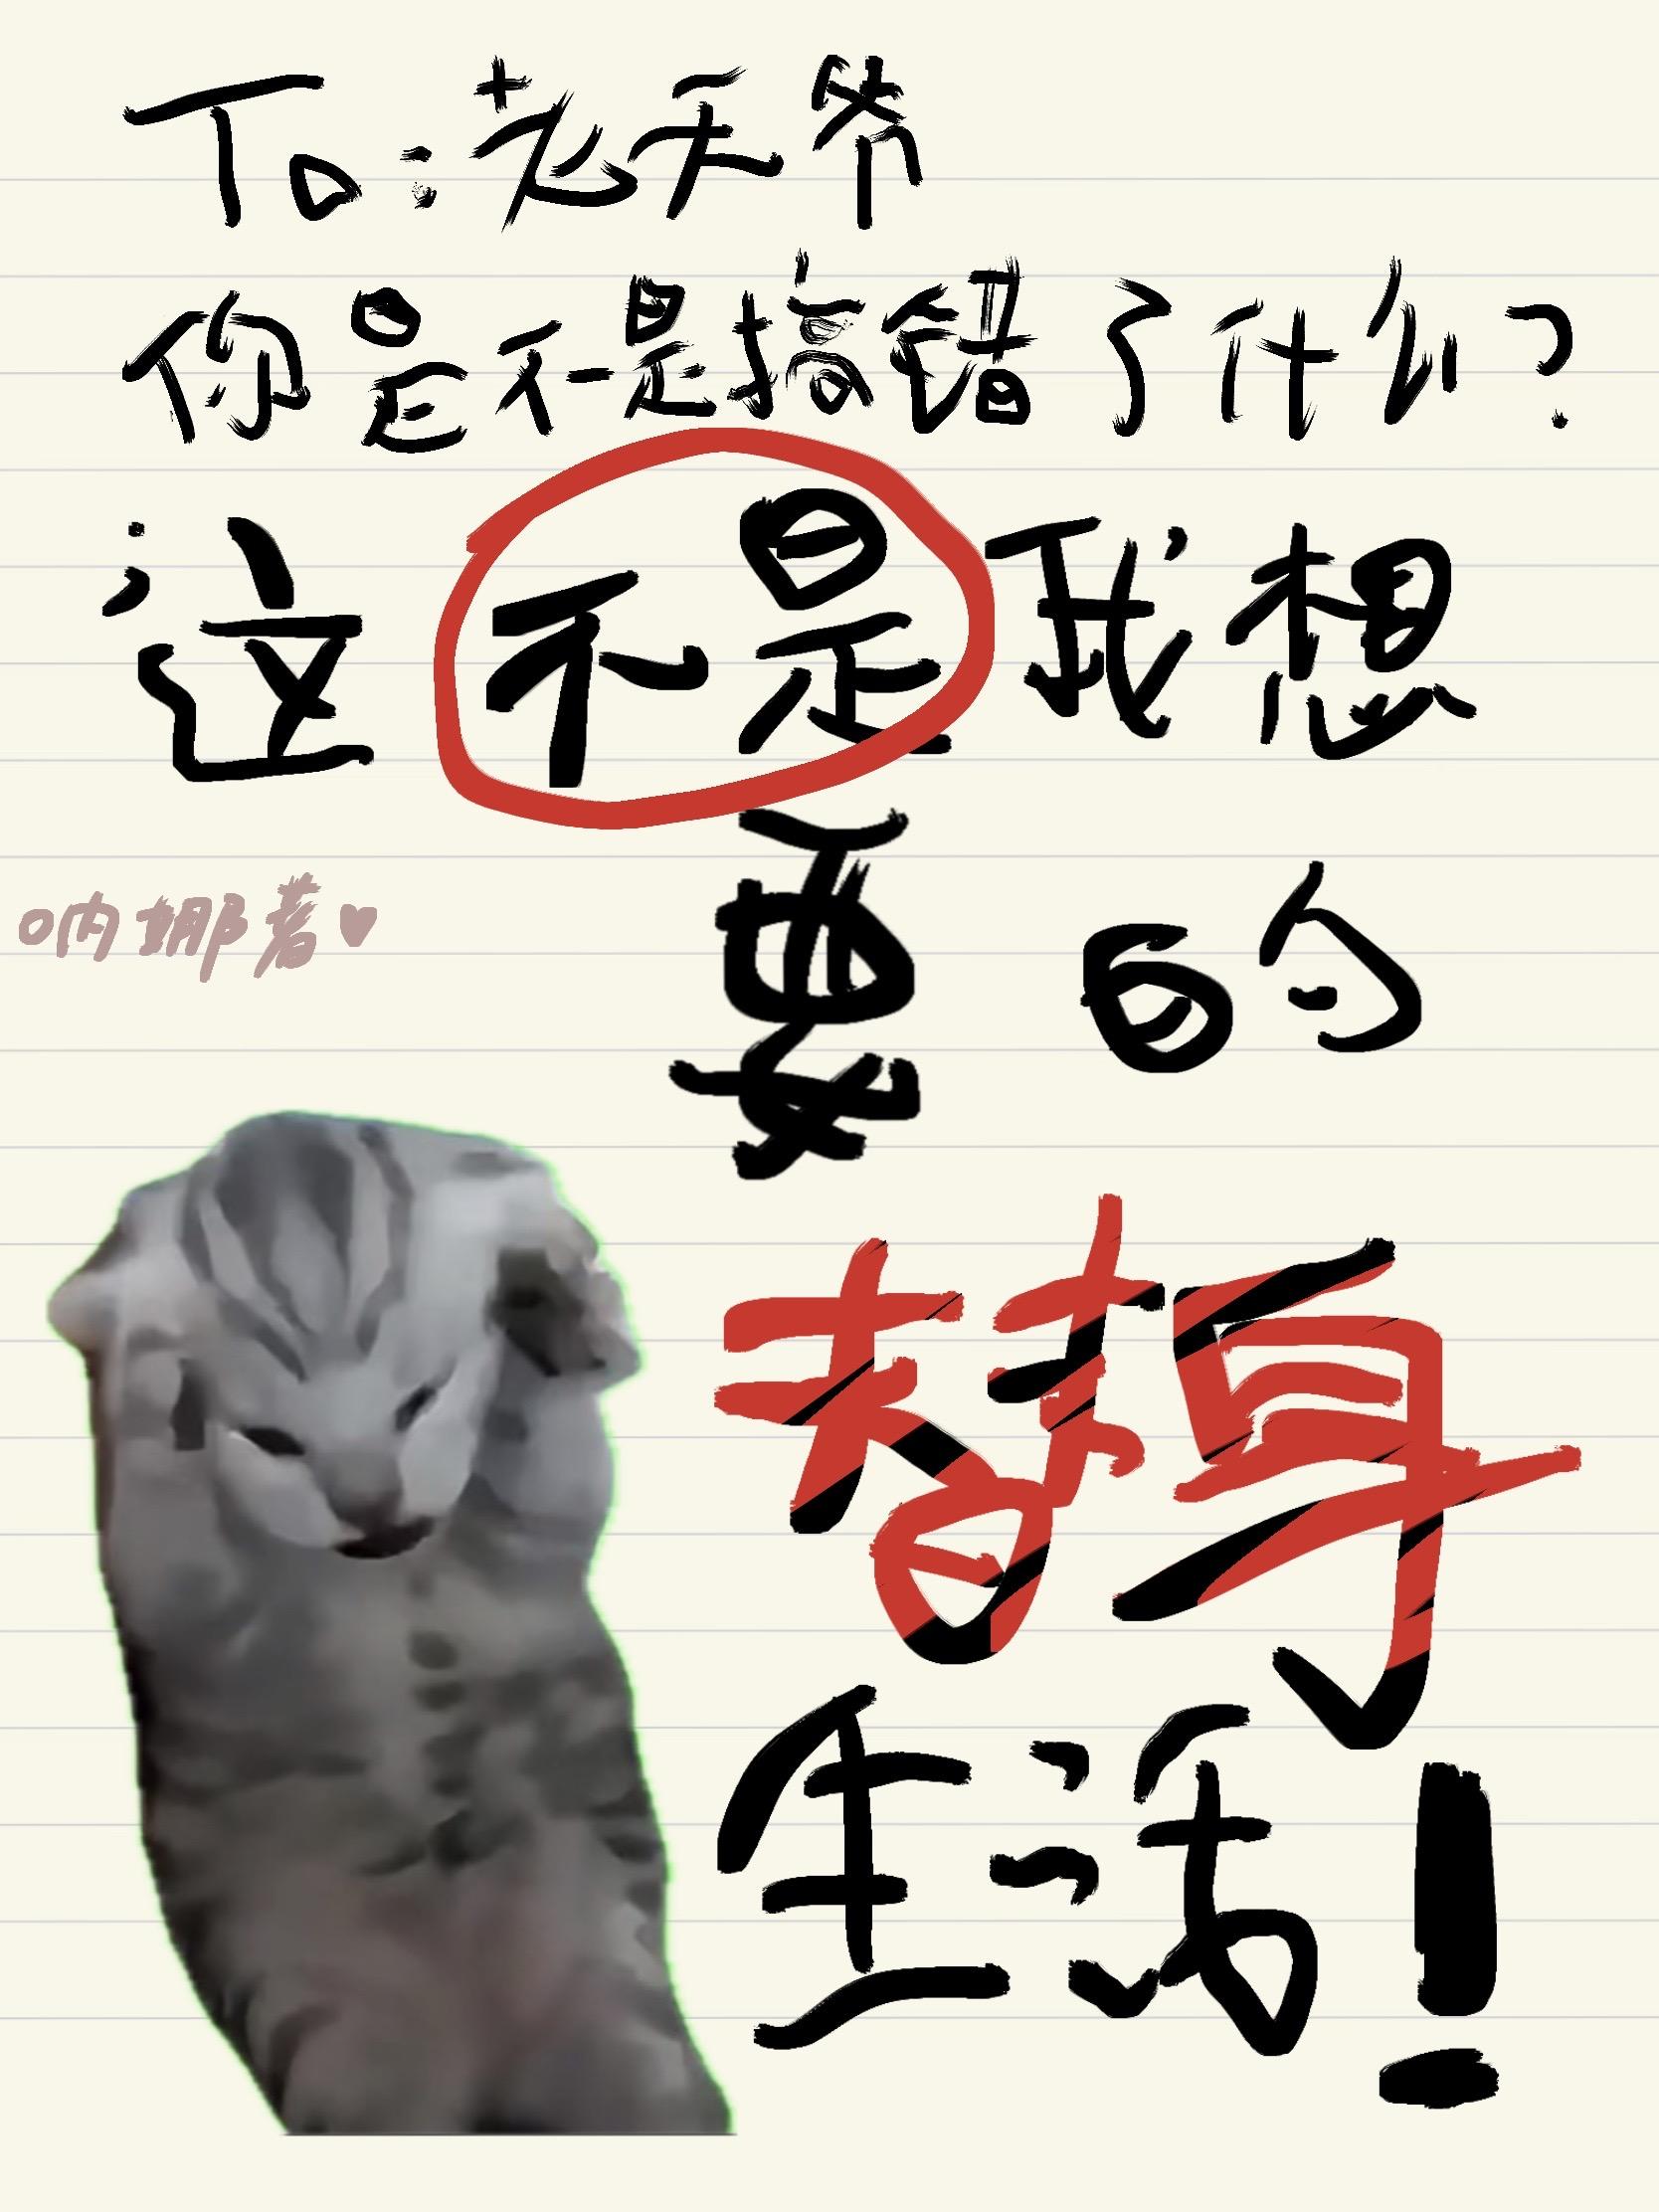 To:老天爷
你是不是搞错了什么?
这不是我想
要的
呐娜著♥
替身
生活!